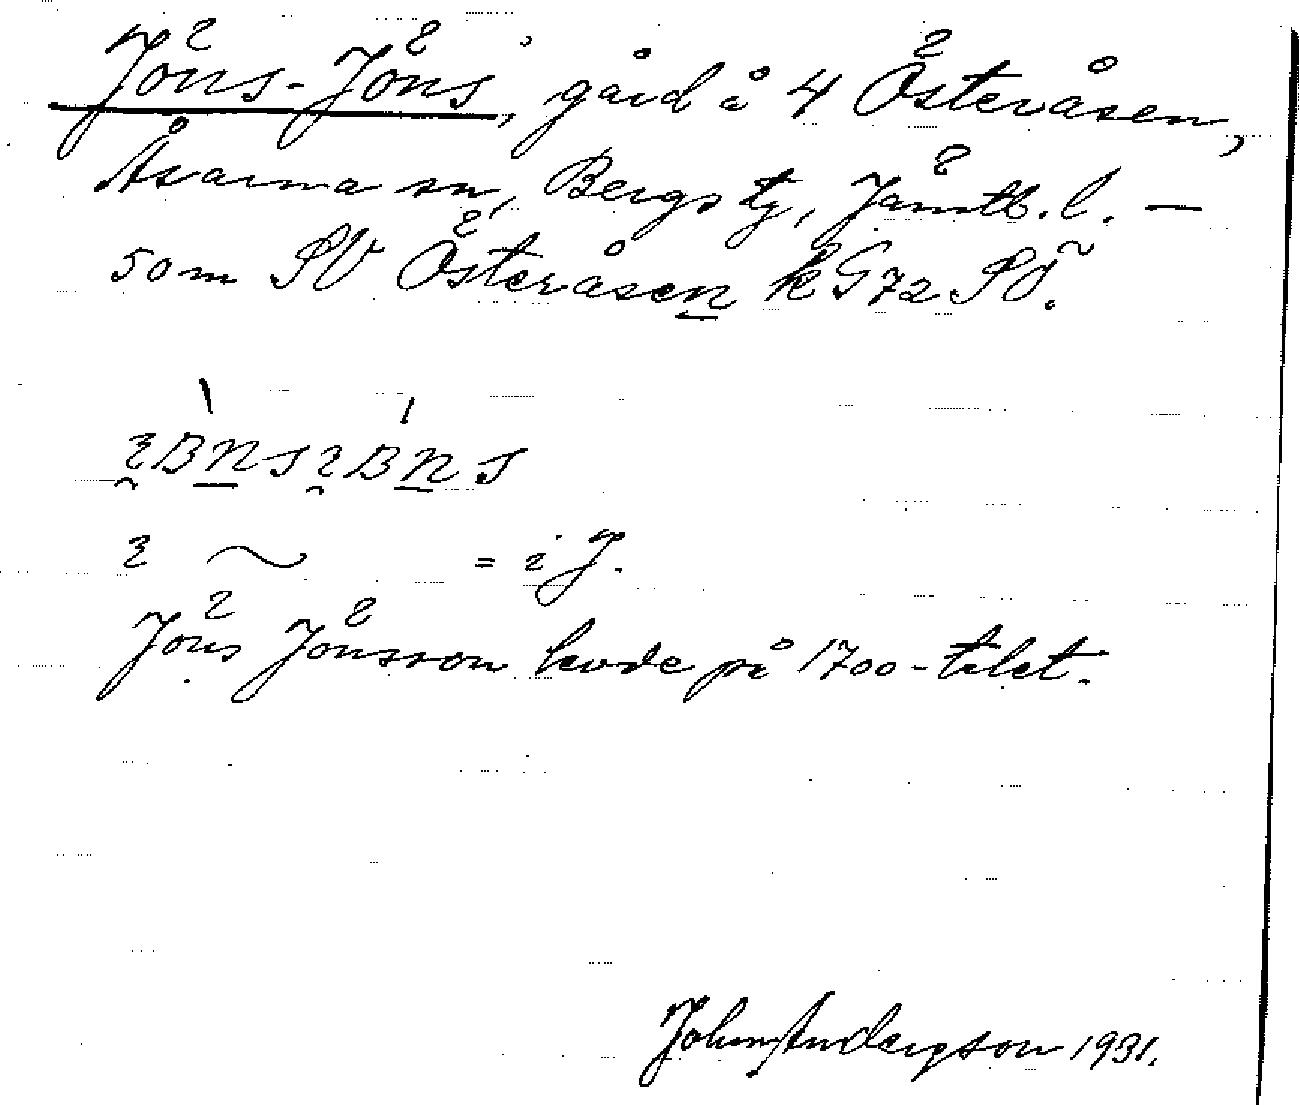 Jöns-Jöns, gård å 4 Österåsen,
Åsarna sn, Bergs tg, Jämtl. l. —
som SV Österåsen kG72 SÖ.
= i J.
Jöns Jönsson levde på 1700-talet.
John Andersson 1931.